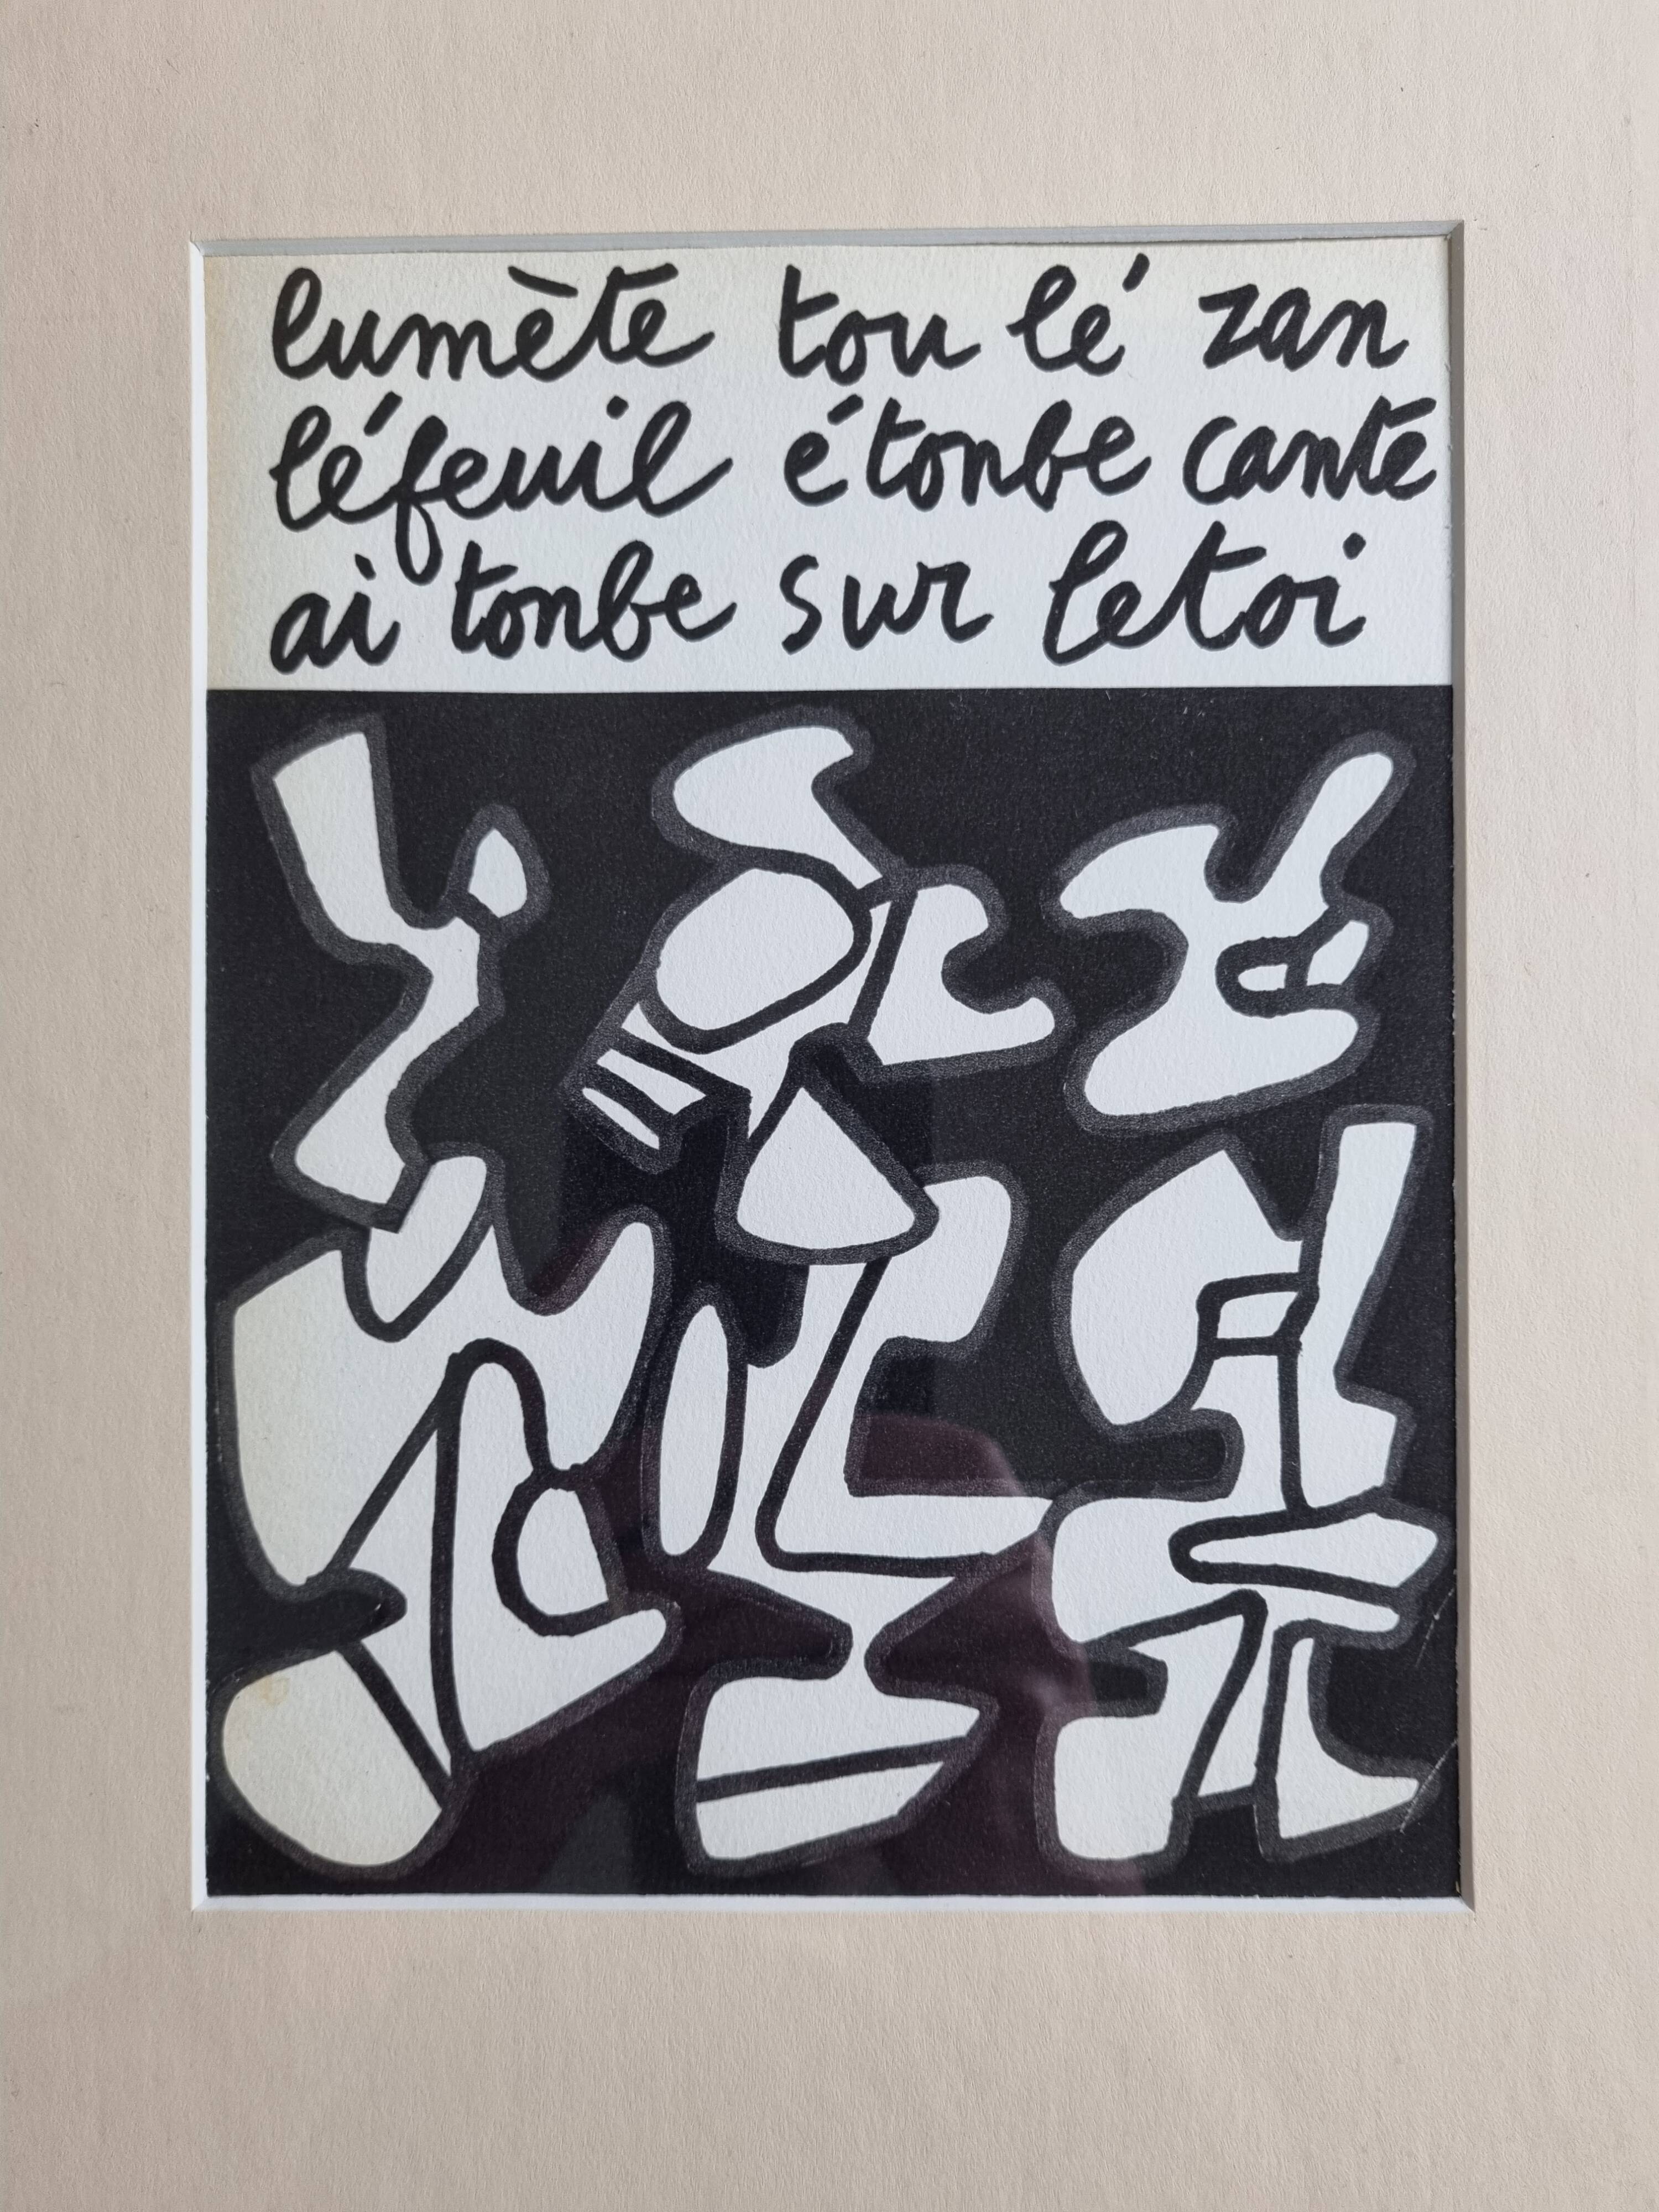 lumète tou lé zan
léfeuil étonbe cante
ai tonbe sur letoi